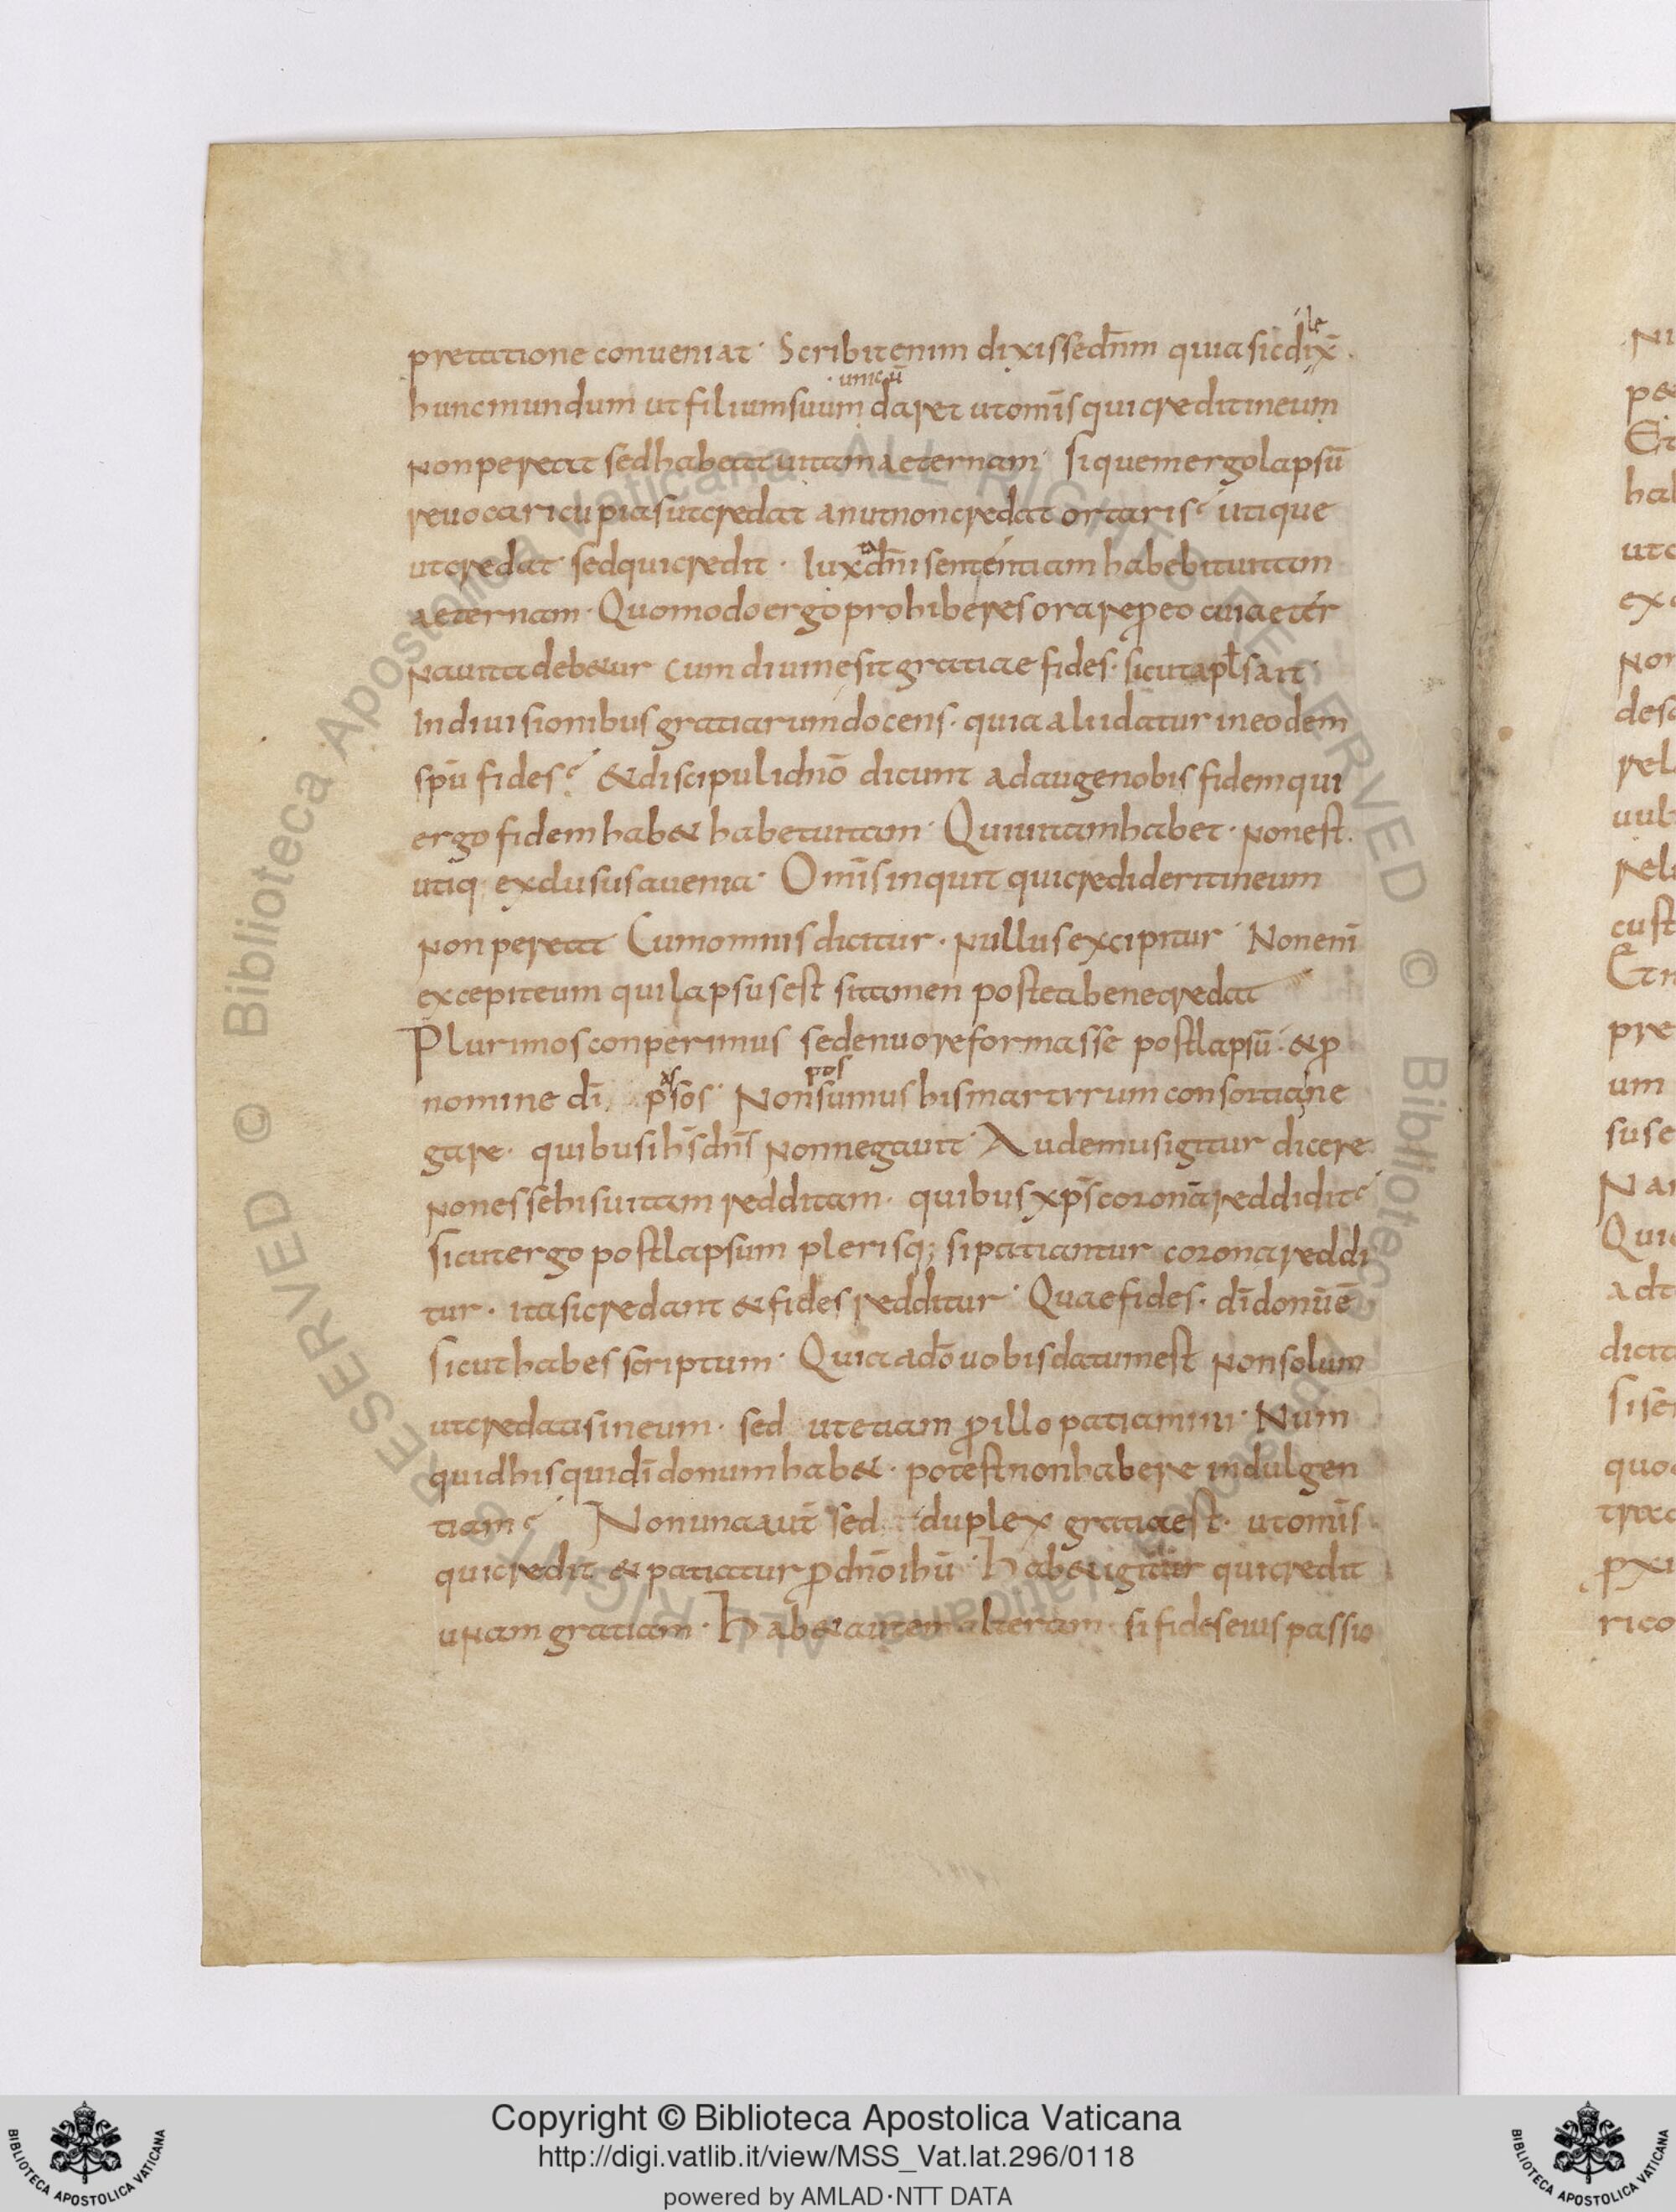 pretatione conueniat· Scribit enim dixisse dn̄m quia sic dilex̄·
hunc mundum ut filium suum unicū daret ut omīs qui credit in eum
non pereat sed habeat uitam aeternam· si quem ergo lapsū
reuocari cupias ut credat an ut non credat ortaris utique
ut credat· sed qui credit· Iuxta dn̄i sententiam habebit uitam
aeternam· Quomodo ergo prohiberes orare ꝓ eo cui aeter
na uita deb&ur cum diuine sit gratiae fides· sicut apl̄s ait
In diuisionibus gratiarum docens· quia alii datur in eodem
spū fides & discipuli dn̄o dicunt adauge nobis fidem qui
ergo fidem hab& habet uitam· Qui uitam habet· non est
utiq; exclusus a uenia· Omīs inquit qui crediderit in eum
non pereat Cum omnis dicitur· nullus excipitur· Non enī
excepit eum qui lapsus est si tamen postea bene credat
Plurimos conperimus se denuo reformasse post lapsū· & ꝓ
nomine dī passos· Non possumus his martyrum consortia ne
gare· quibus ih̄s dn̄s non negauit· Audemus igitur dicere
non esse his uitam redditam· quibus xp̄s coronā reddidit
sicut ergo post lapsum plerisq; si patiantur corona reddi
tur· ita si credant & fides redditur· Quae fides· dī donū ē
sicut habes scriptum· Quia a dō uobis datum est non solum
ut credatis in eum· sed ut etiam ꝓ illo patiamini· Num
quid his qui dī donum hab&· potest non habere indulgen
tiam Non una aut̄ sed duplex gratia est· ut omīs
qui credit & patiatur ꝓ dn̄o ihū· Hab& igitur qui credit
unam gratiam· Hab& autem alteram· si fides eius passio
Copyright © Biblioteca Apostolica Vaticana
http://digi.vatlib.it/view/MSS_Vat.lat.296/0118
powered by AMLAD·NTT DATA
BIBLIOTECA APOSTOLICA VATICANA
BIBLIOTECA APOSTOLICA VATICANA